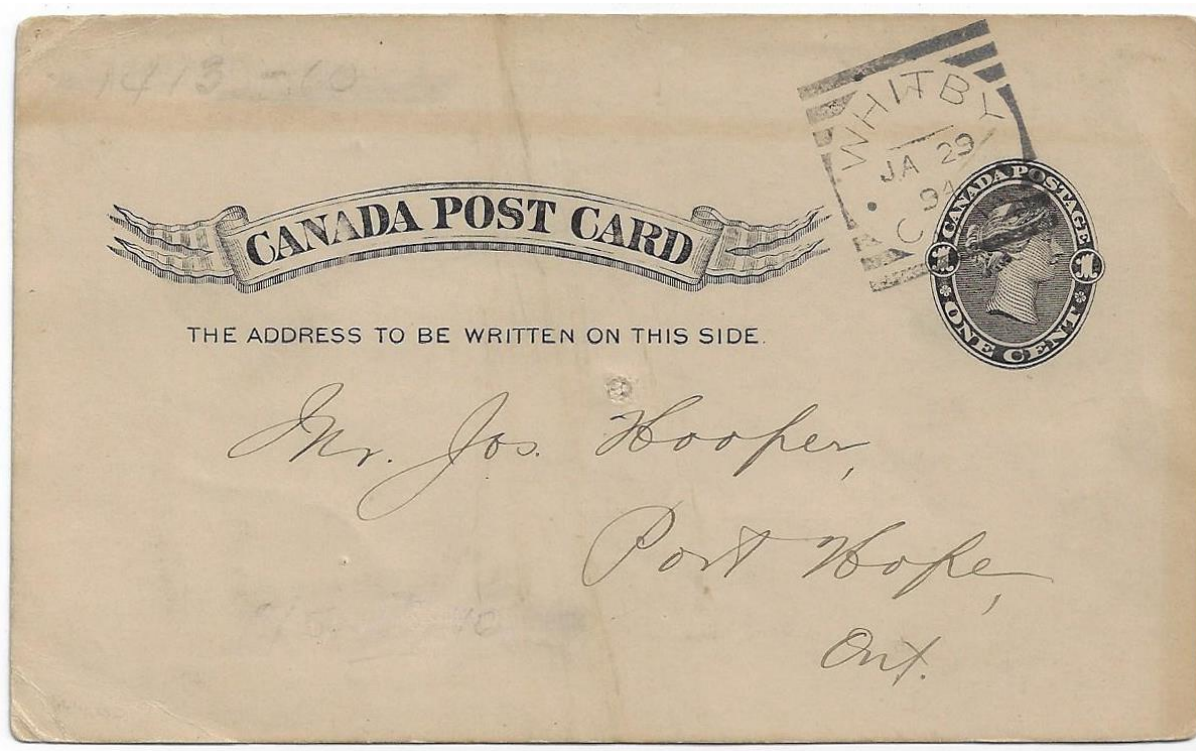 WHITBY
JA 29
94
C
CANADA POSTAGE
1 1
ONE CENT
CANADA POST CARD
THE ADDRESS TO BE WRITTEN ON THIS SIDE.
Mr. Jos. Hooper,
Port Hope,
Ont.